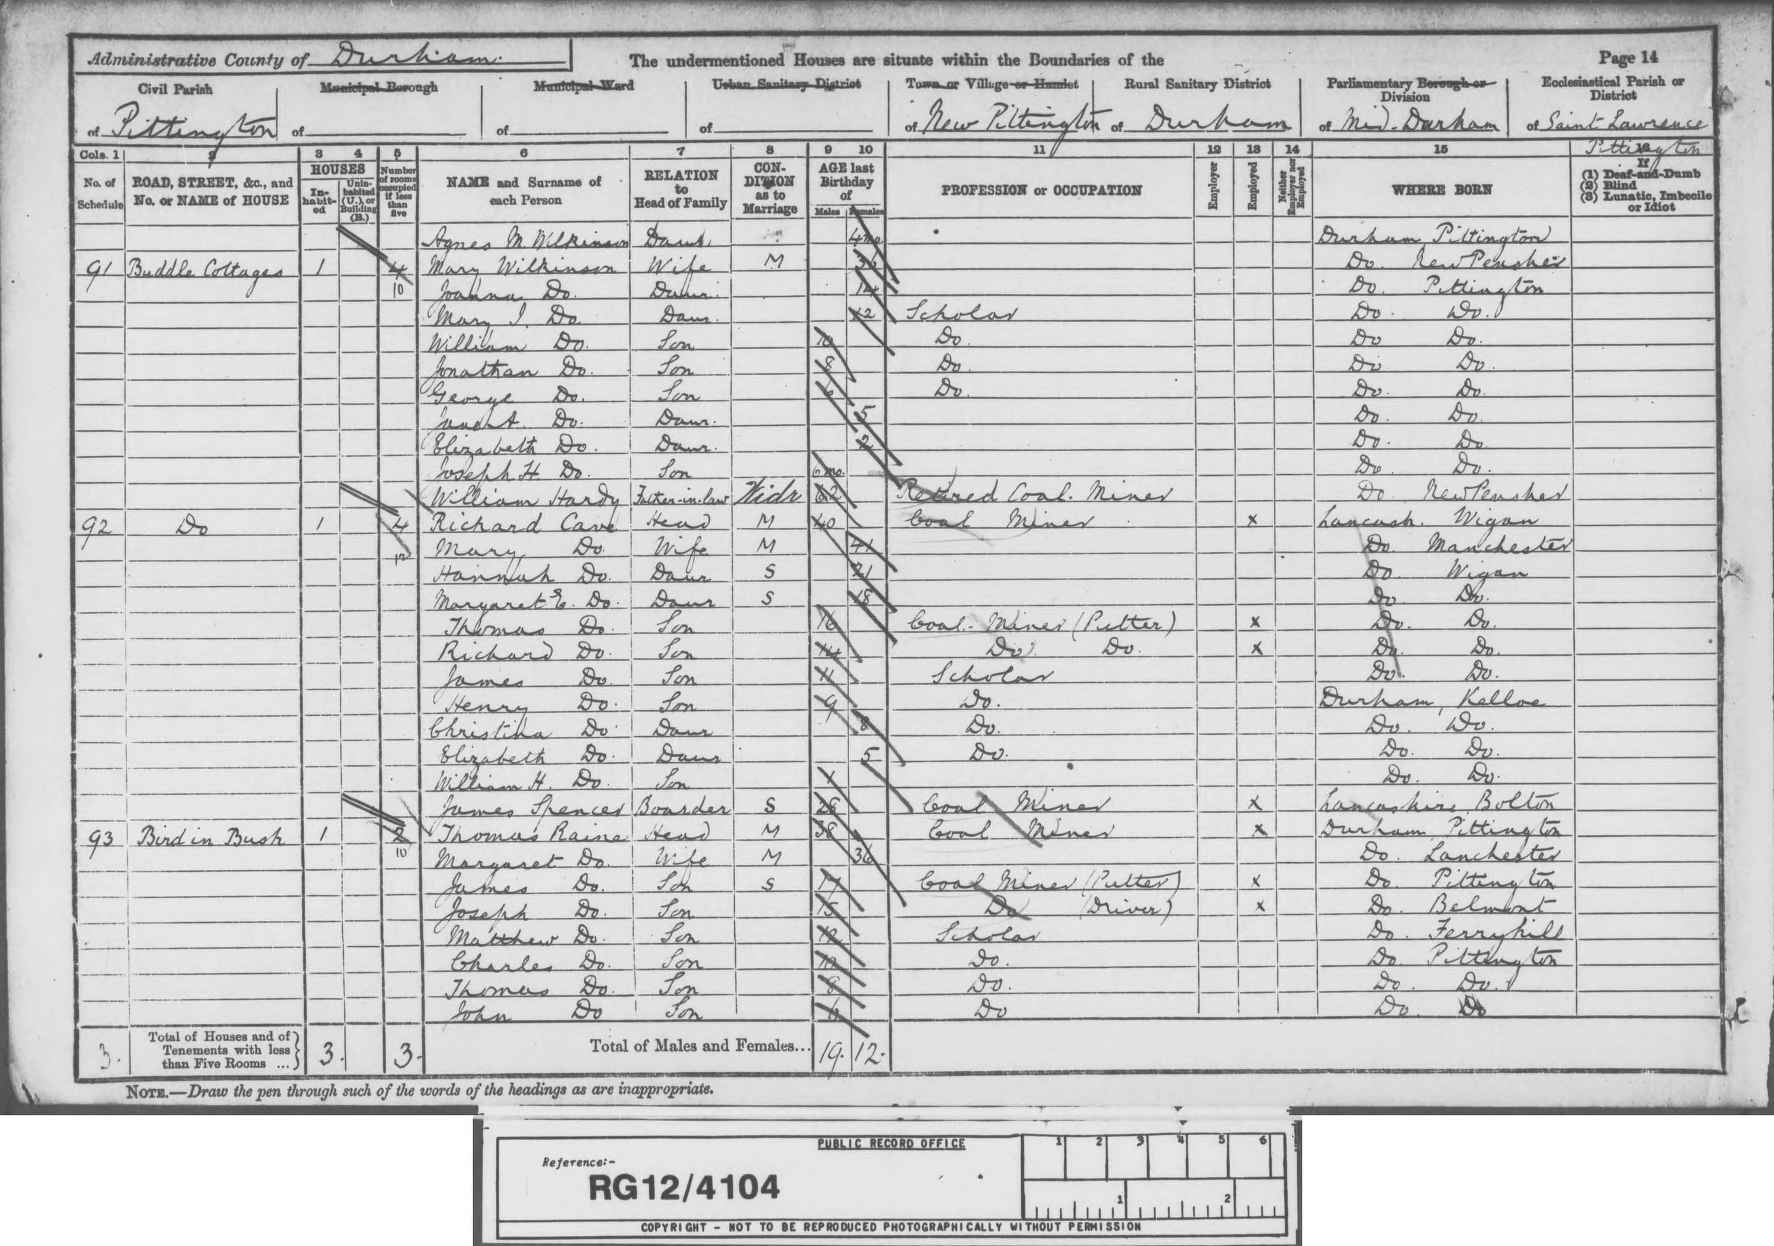 Administrative County of Durham. The undermentioned Houses are situate within the Boundaries of the Page 14
Civil Parish Municipal Borough Municipal Ward Urban Sanitary District Town or Village or Hamlet Rural Sanitary District Parliamentary Borough or Division Ecclesiastical Parish or District
of Pittington of of of of New Pittington of Durham of Mid-Durham of Saint Lawrence Pittington
Cols. 1 2 3 4 5 6 7 8 9 10 11 12 13 14 15 16
No. of Schedule ROAD, STREET, &c., and No. or NAME of HOUSE HOUSES Inhabited Uninhabited (U.), or Building (B.) Number of rooms occupied if less than five NAME and Surname of each Person RELATION to Head of Family CONDITION as to Marriage AGE last Birthday of Males Females PROFESSION or OCCUPATION Employer Employed Neither Employer nor Employed WHERE BORN If (1) Deaf-and-Dumb (2) Blind (3) Lunatic, Imbecile or Idiot
Agnes M. Wilkinson Daur. 4 mo. Durham Pittington
91 Buddle Cottages 1 4 Mary Wilkinson Wife M Do. New Pensher
10 Joanna Do. Daur. 14 Do. Pittington
Mary J. Do. Daur. 12 Scholar Do. Do.
William Do. Son 10 Do. Do Do.
Jonathan Do. Son 8 Do. Do Do.
George Do. Son 6 Do. Do. Do.
Do. Daur. 5 Do. Do.
Elizabeth Do. Daur. 2 Do. Do
Joseph H. Do. Son 6 mo. Do Do.
William Hardy Father-in-law Widr 62 Retired Coal Miner Do New Pensher
92 Do 1 4 Richard Cave Head M 40 Coal Miner x Lancash. Wigan
12 Mary Do. Wife M 41 Do. Manchester
Hannah Do. Daur S 21 Do. Wigan
Margaret E. Do. Daur S 18 Do. Do.
Thomas Do. Son 16 Coal Miner (Putter) x Do. Do.
Richard Do. Son 14 Do Do. x Do. Do.
James Do. Son 11 Scholar Do. Do.
Henry Do. Son 9 Do. Durham, Kelloe
Christina Do. Daur 8 Do. Do. Do.
Elizabeth Do. Daur 5 Do. Do. Do.
William H. Do. Son 1 Do. Do.
James Spencer Boarder S 28 Coal Miner x Lancashire, Bolton
93 Bird in Bush 1 2 Thomas Raine Head M 38 Coal Miner x Durham Pittington
10 Margaret Do. Wife M 36 Do. Lanchester
James Do. Son S 17 Coal Miner (Putter) x Do. Pittington
Joseph Do. Son 15 Do (Driver) x Do. Belmont
Matthew Do. Son 12 Scholar Do. Ferryhill
Charles Do. Son Do. Do. Pittington
Thomas Do. Son 8 Do. Do. Do.
John Do Son 6 Do Do. Do
3. Total of Houses and of Tenements with less than Five Rooms ... 3. 3. Total of Males and Females... 19. 12.
NOTE.—Draw the pen through such of the words of the headings as are inappropriate.
PUBLIC RECORD OFFICE 1 2 3 4 5 6
Reference:-
RG12/4104
1 2
COPYRIGHT - NOT TO BE REPRODUCED PHOTOGRAPHICALLY WITHOUT PERMISSION